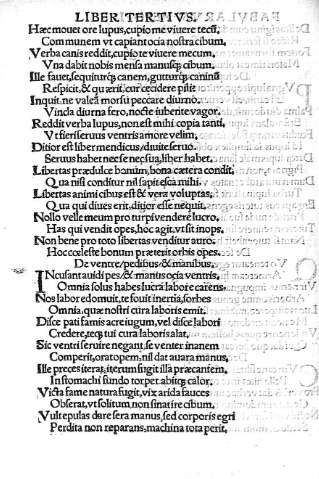 LIBER TERTIVS.
Hæc mouet ore lupus, cupio me viuere tecũ,
Communem vt capiant ocia nostra cibum.
Verba canis reddit, cupio te viuere mecum,
Vna dabit nobis mensa manusq; cibum.
Ille fauet, sequiturq; canem, gutturq; caninũ
Respicit, & quærit, cur cecidere pili?
Inquit. ne valeã morsu peccare diurno,
Vincla diurna fero, nocte iubente vagor.
Reddit verba lupus, non est mihi copia tanti,
Vt fieri seruus ventris amore velim,
Ditior est liber mendicus/ diuite seruo.
Seruus habet nec se nec sua, liber habet.
Libertas prædulce bonum, bona cætera condit,
Qua nisi conditur nil sapit esca mihi.
Libertas animi cibus est & vera voluptas,
Qua qui diues erit, ditior esse nequit.
Nollo velle meum pro turpi vendere lucro,
Has qui vendit opes, hoc agit, vt sit inops.
Non bene pro toto libertas venditur auro.
Hoc cœleste bonum præterit orbis opes.
De ventre/ pedibus & manibus.
INcusant auidi pes/ & manus ocia ventris,
Omnia solus habes lucra labore carens.
Nos labor edomuit, te fouit inertia, sorbes
Omnia, quæ nostri cura laboris emit.
Disce pati famis acre iugum, vel disce labori
Credere, teq; tui cura laboris alat.
Sic ventri seruire negant, se venter inanem
Comperit, orat opem, nil dat auara manus,
Ille preces iterat, iterum fugit illa præcantem,
In stomachi fundo torpet abitq; calor.
Victa fame natura fugit, vix arida fauces
Obserat, vt solitum non sinat ire cibum.
Vult epulas dare sera manus, sed corporis egri
Perdita non reparans, machina tota perit.